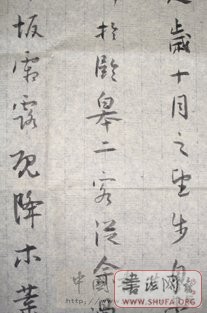 歲十月之望步自
於臨皋二客從
坂霜露既降木葉
WWW.SHUFA.ORG